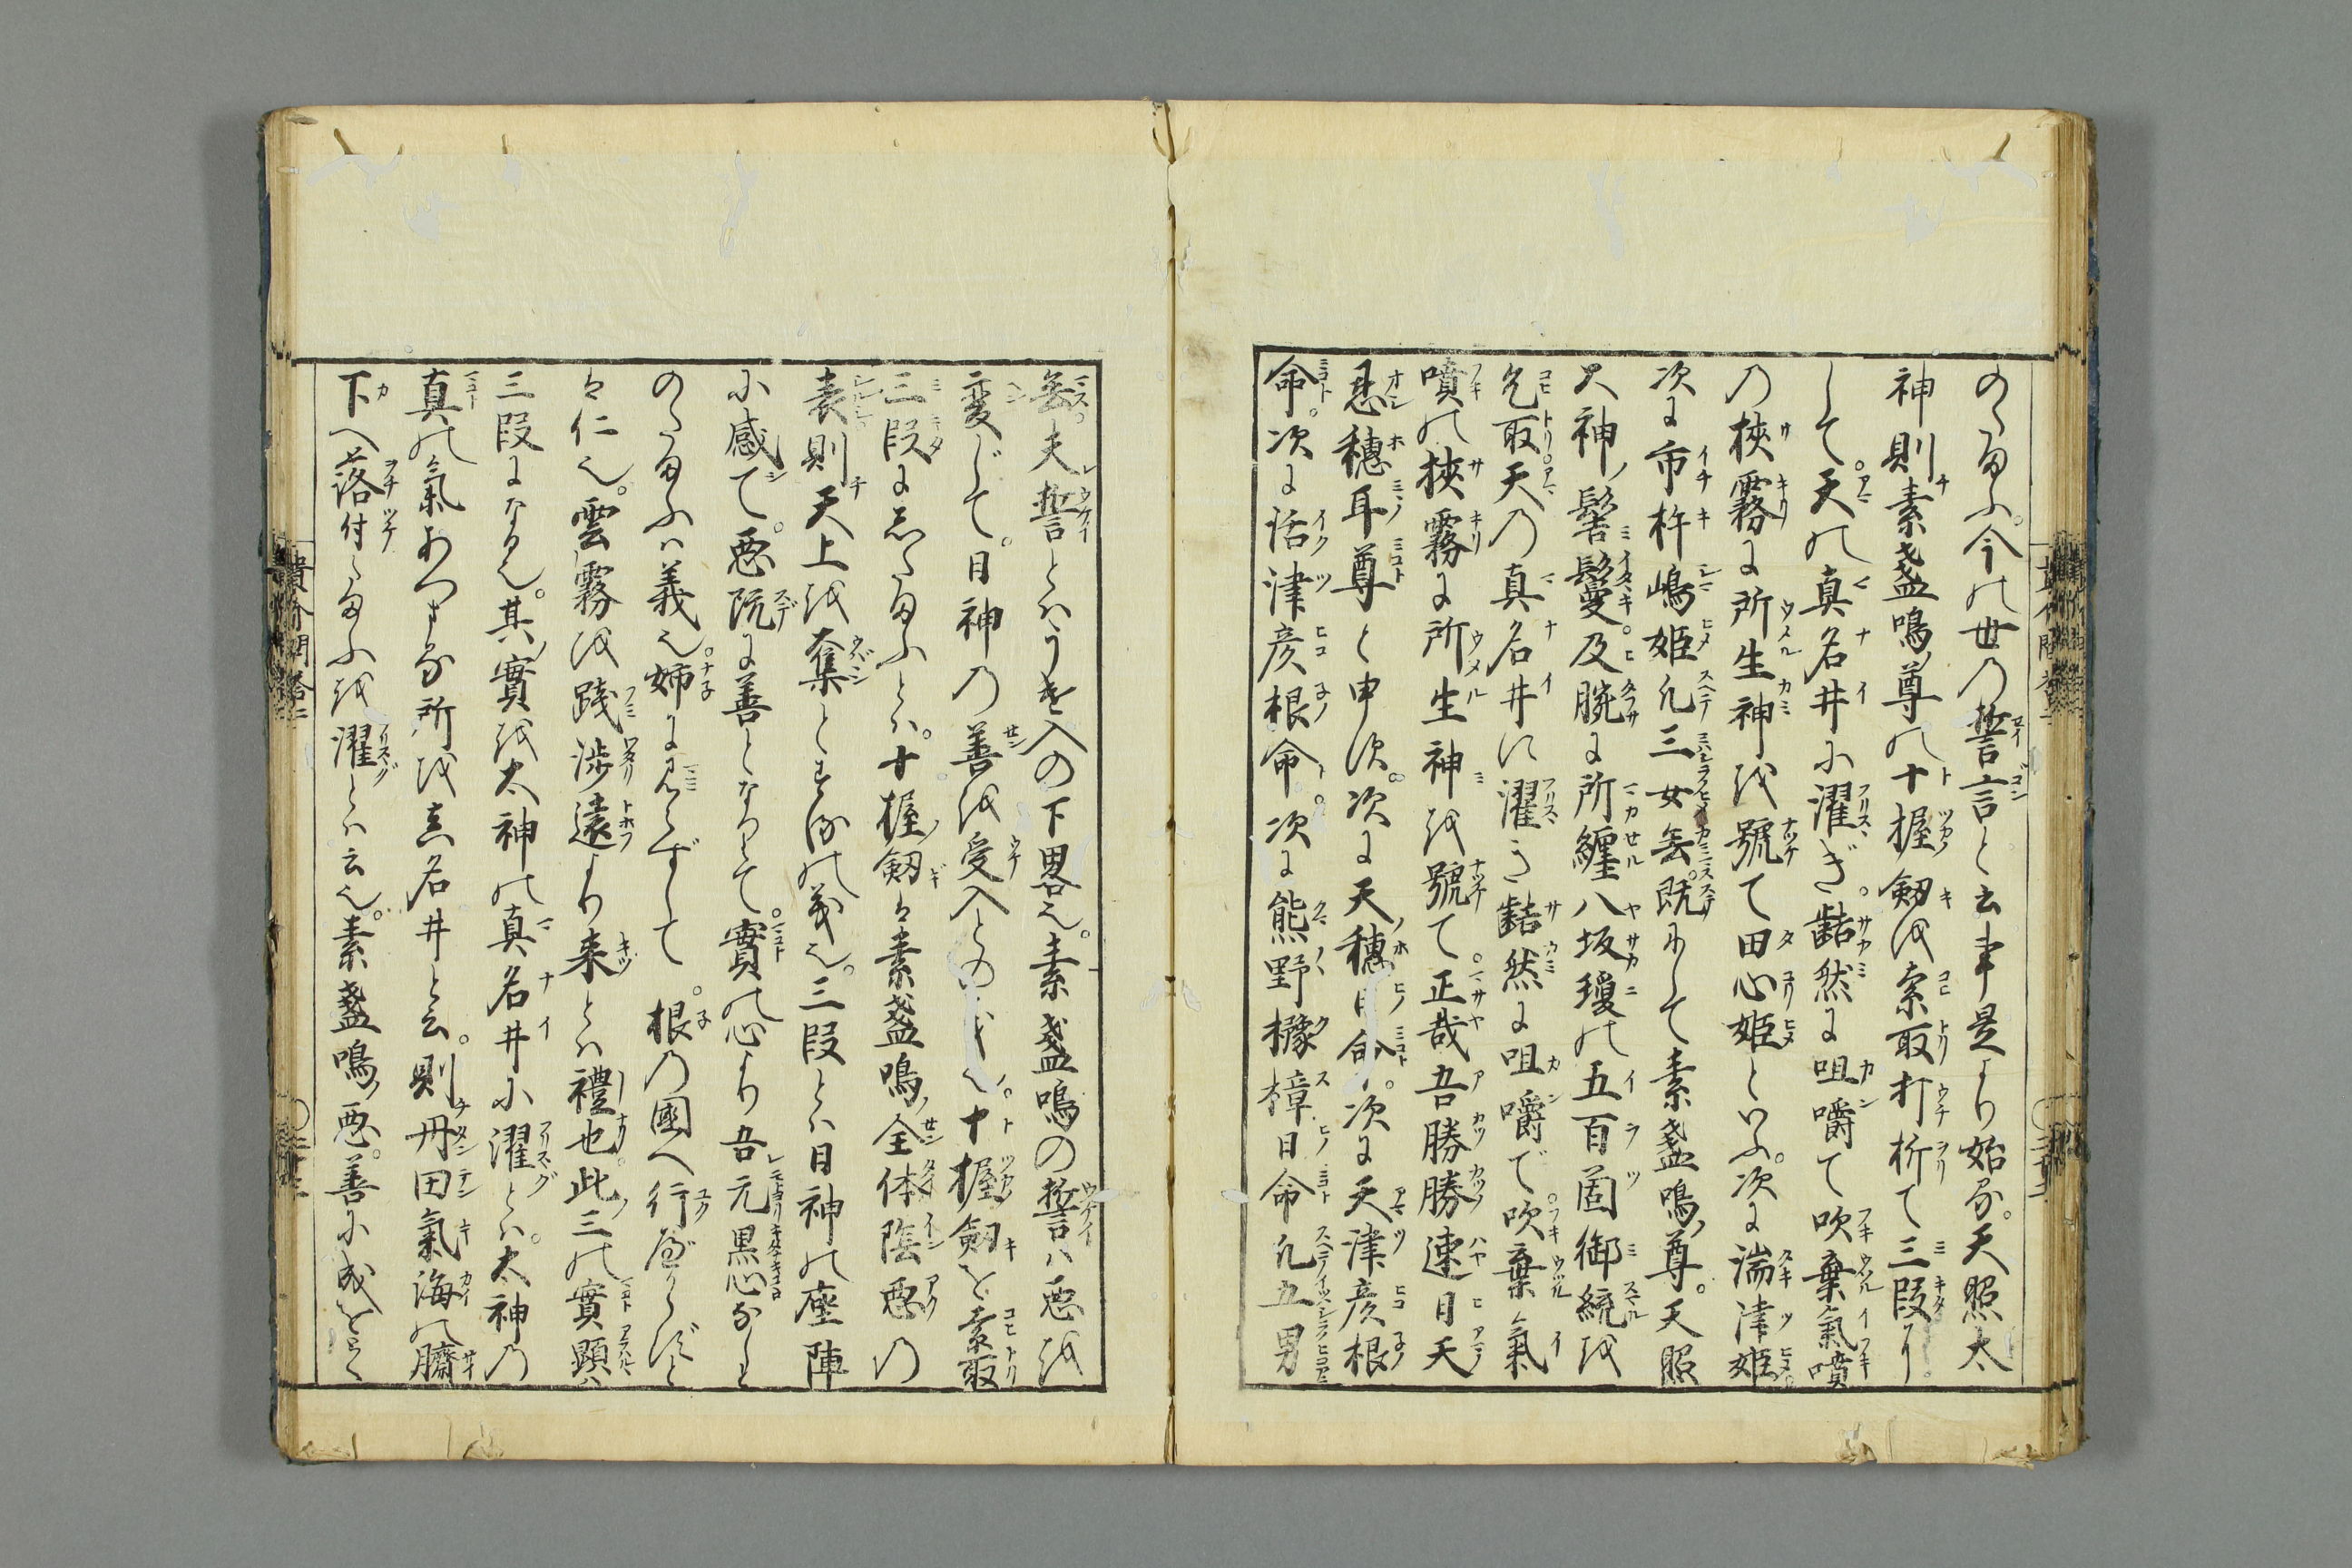 のたまふ。今の世の誓言と云事是より始る。天照太
神則素盞嗚ノ尊の十握劔を索取打折て三段に
して。天の真名井に濯ぎ。齰然に咀嚼て吹棄氣噴
の狹霧に所生神を號て田心姫といふ。次に湍津姫
次に市杵嶋姫凡三女㐂。既にして素盞嗚ノ尊。天照
大神ノ髻鬘及腕に所纏八坂瓊の五百箇御統を
乞取天の真名井に濯き齰然に咀嚼で吹棄氣
噴の狹霧に所生神を號て正哉吾勝勝速日天
忍穗耳尊と申す。次に天穗日命。次に天津彦根
命。次に活津彦根命。次に熊野櫲樟日命凡五男
㐂。夫誓とはうけ入の下畧也。素盞嗚の誓は悪を
変じて。日神の善を受入との義也。十握劔を索取
三段になしたまふとは。十握ノ劔は素盞嗚ノ全体陰悪の
表則天上を奪とする の義也。三段とは日神の座陣
に感て。悪既に善となりて。實の心より吾元黒心なしと
のたまふは義也。姉に見へずして。根の國へ行べからずと
は仁也。雲霧を践渉遠より来とは禮也。此三の實顕ハ
三段になる也。其ノ實を太神の真名井に濯とは。太神の
真の氣あつまる所を真名井と云。則丹田氣海の臍
下へ落付たまふを濯とは云也。素盞嗚ノ悪。善に成をとく